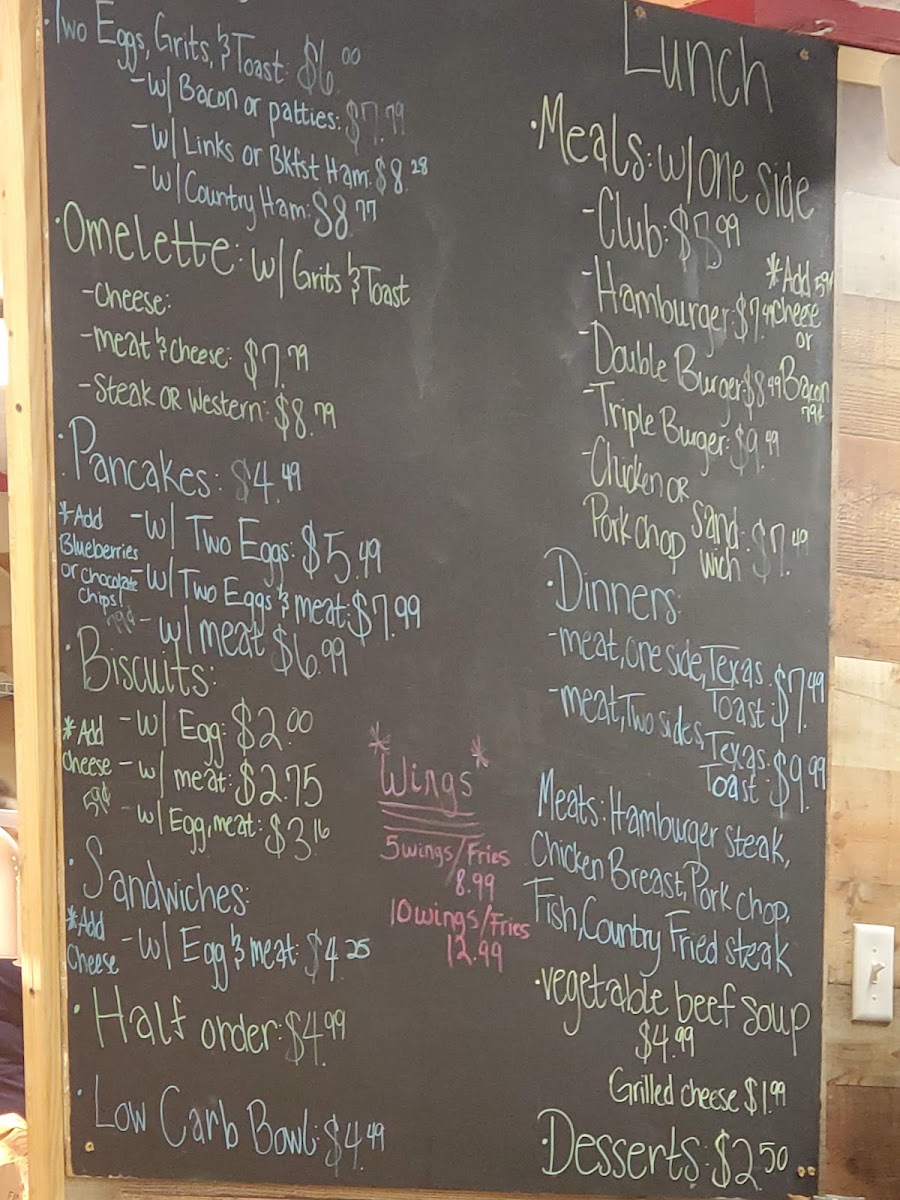 ·Two Eggs, Grits, & Toast: $6.00
-w/ Bacon or patties: $7.79
-w/ Links or Bkfst Ham: $8.28
-w/ Country Ham: $8.77
·Omelette: w/ Grits & Toast
-Cheese:
-meat & cheese: $7.79
-Steak OR Western: $8.79
·Pancakes: $4.49
*Add Blueberries or Chocolate Chips! 79¢
-w/ Two Eggs: $5.49
-w/ Two Eggs & meat: $7.99
-w/ meat $6.99
·Biscuits:
*Add Cheese 59¢
-w/ Egg: $2.00
-w/ meat: $2.75
-w/ Egg, meat: $3.16
·Sandwiches:
*Add Cheese
-w/ Egg & meat: $4.25
·Half order: $4.99
·Low Carb Bowl: $4.49
*Wings*
5wings/Fries
8.99
10wings/Fries
12.99
Lunch
·Meals: w/one side
-Club: $5.99
*Add 59¢ Cheese or Bacon 79¢
-Hamburger: $7.49
-Double Burger: $8.49
-Triple Burger: $9.49
-Chicken OR
Pork chop Sandwich: $7.49
·Dinners:
-meat, one side, Texas
Toast: $7.49
-meat, Two sides, Texas
Toast: $9.99
Meats: Hamburger Steak,
Chicken Breast, Pork chop,
Fish, Country Fried Steak
·vegetable beef soup
$4.99
Grilled cheese $1.99
·Desserts: $2.50